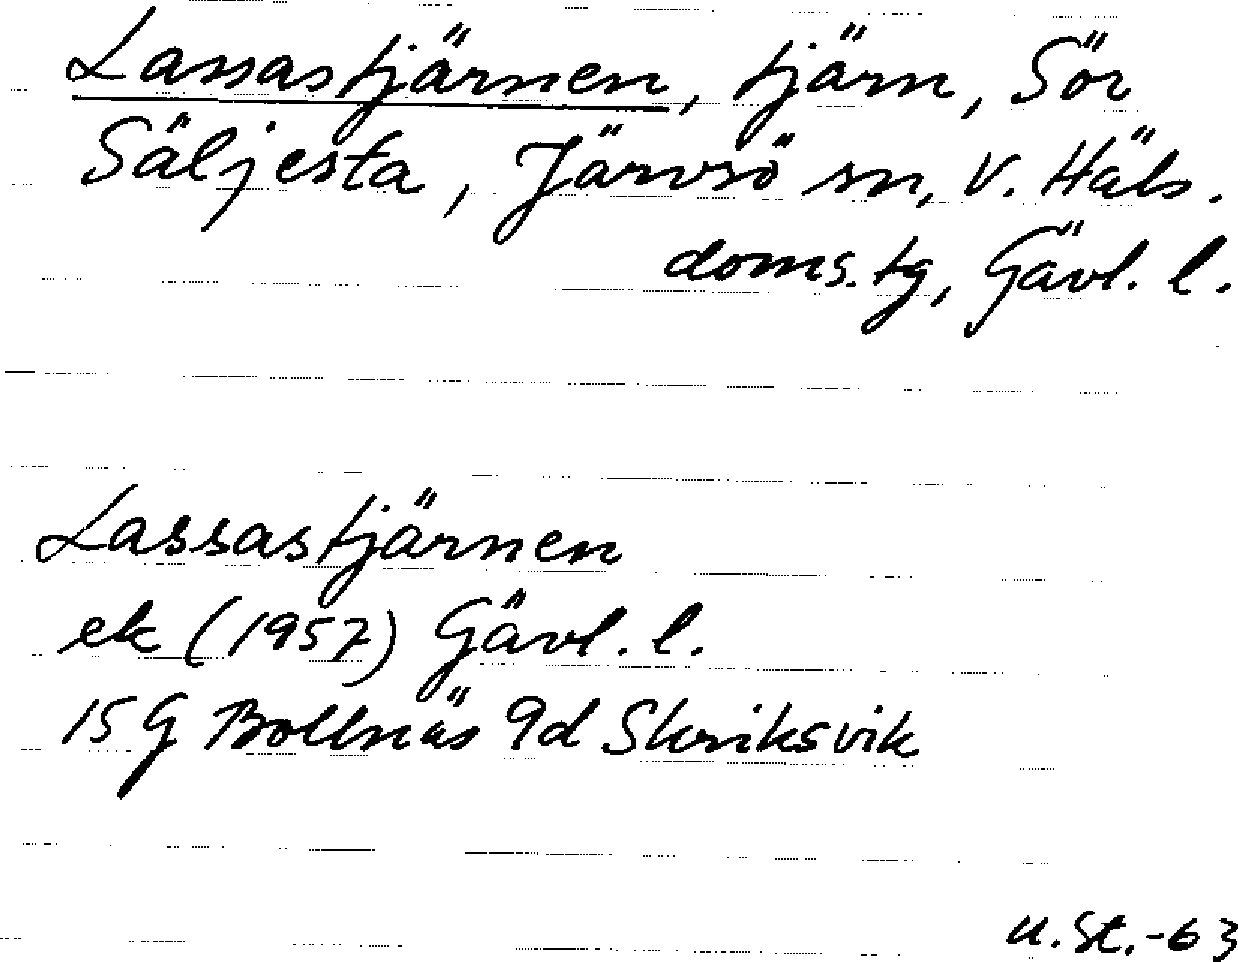 Lassastjärnen, tjärn, Sör
Säljesta, Järvsö sn, V. Häls.
doms.tg, Gävl. l.
Lassastjärnen
ek (1957) Gävl. l.
15 G Bollnäs 9d Skriksvik
U.St.-63